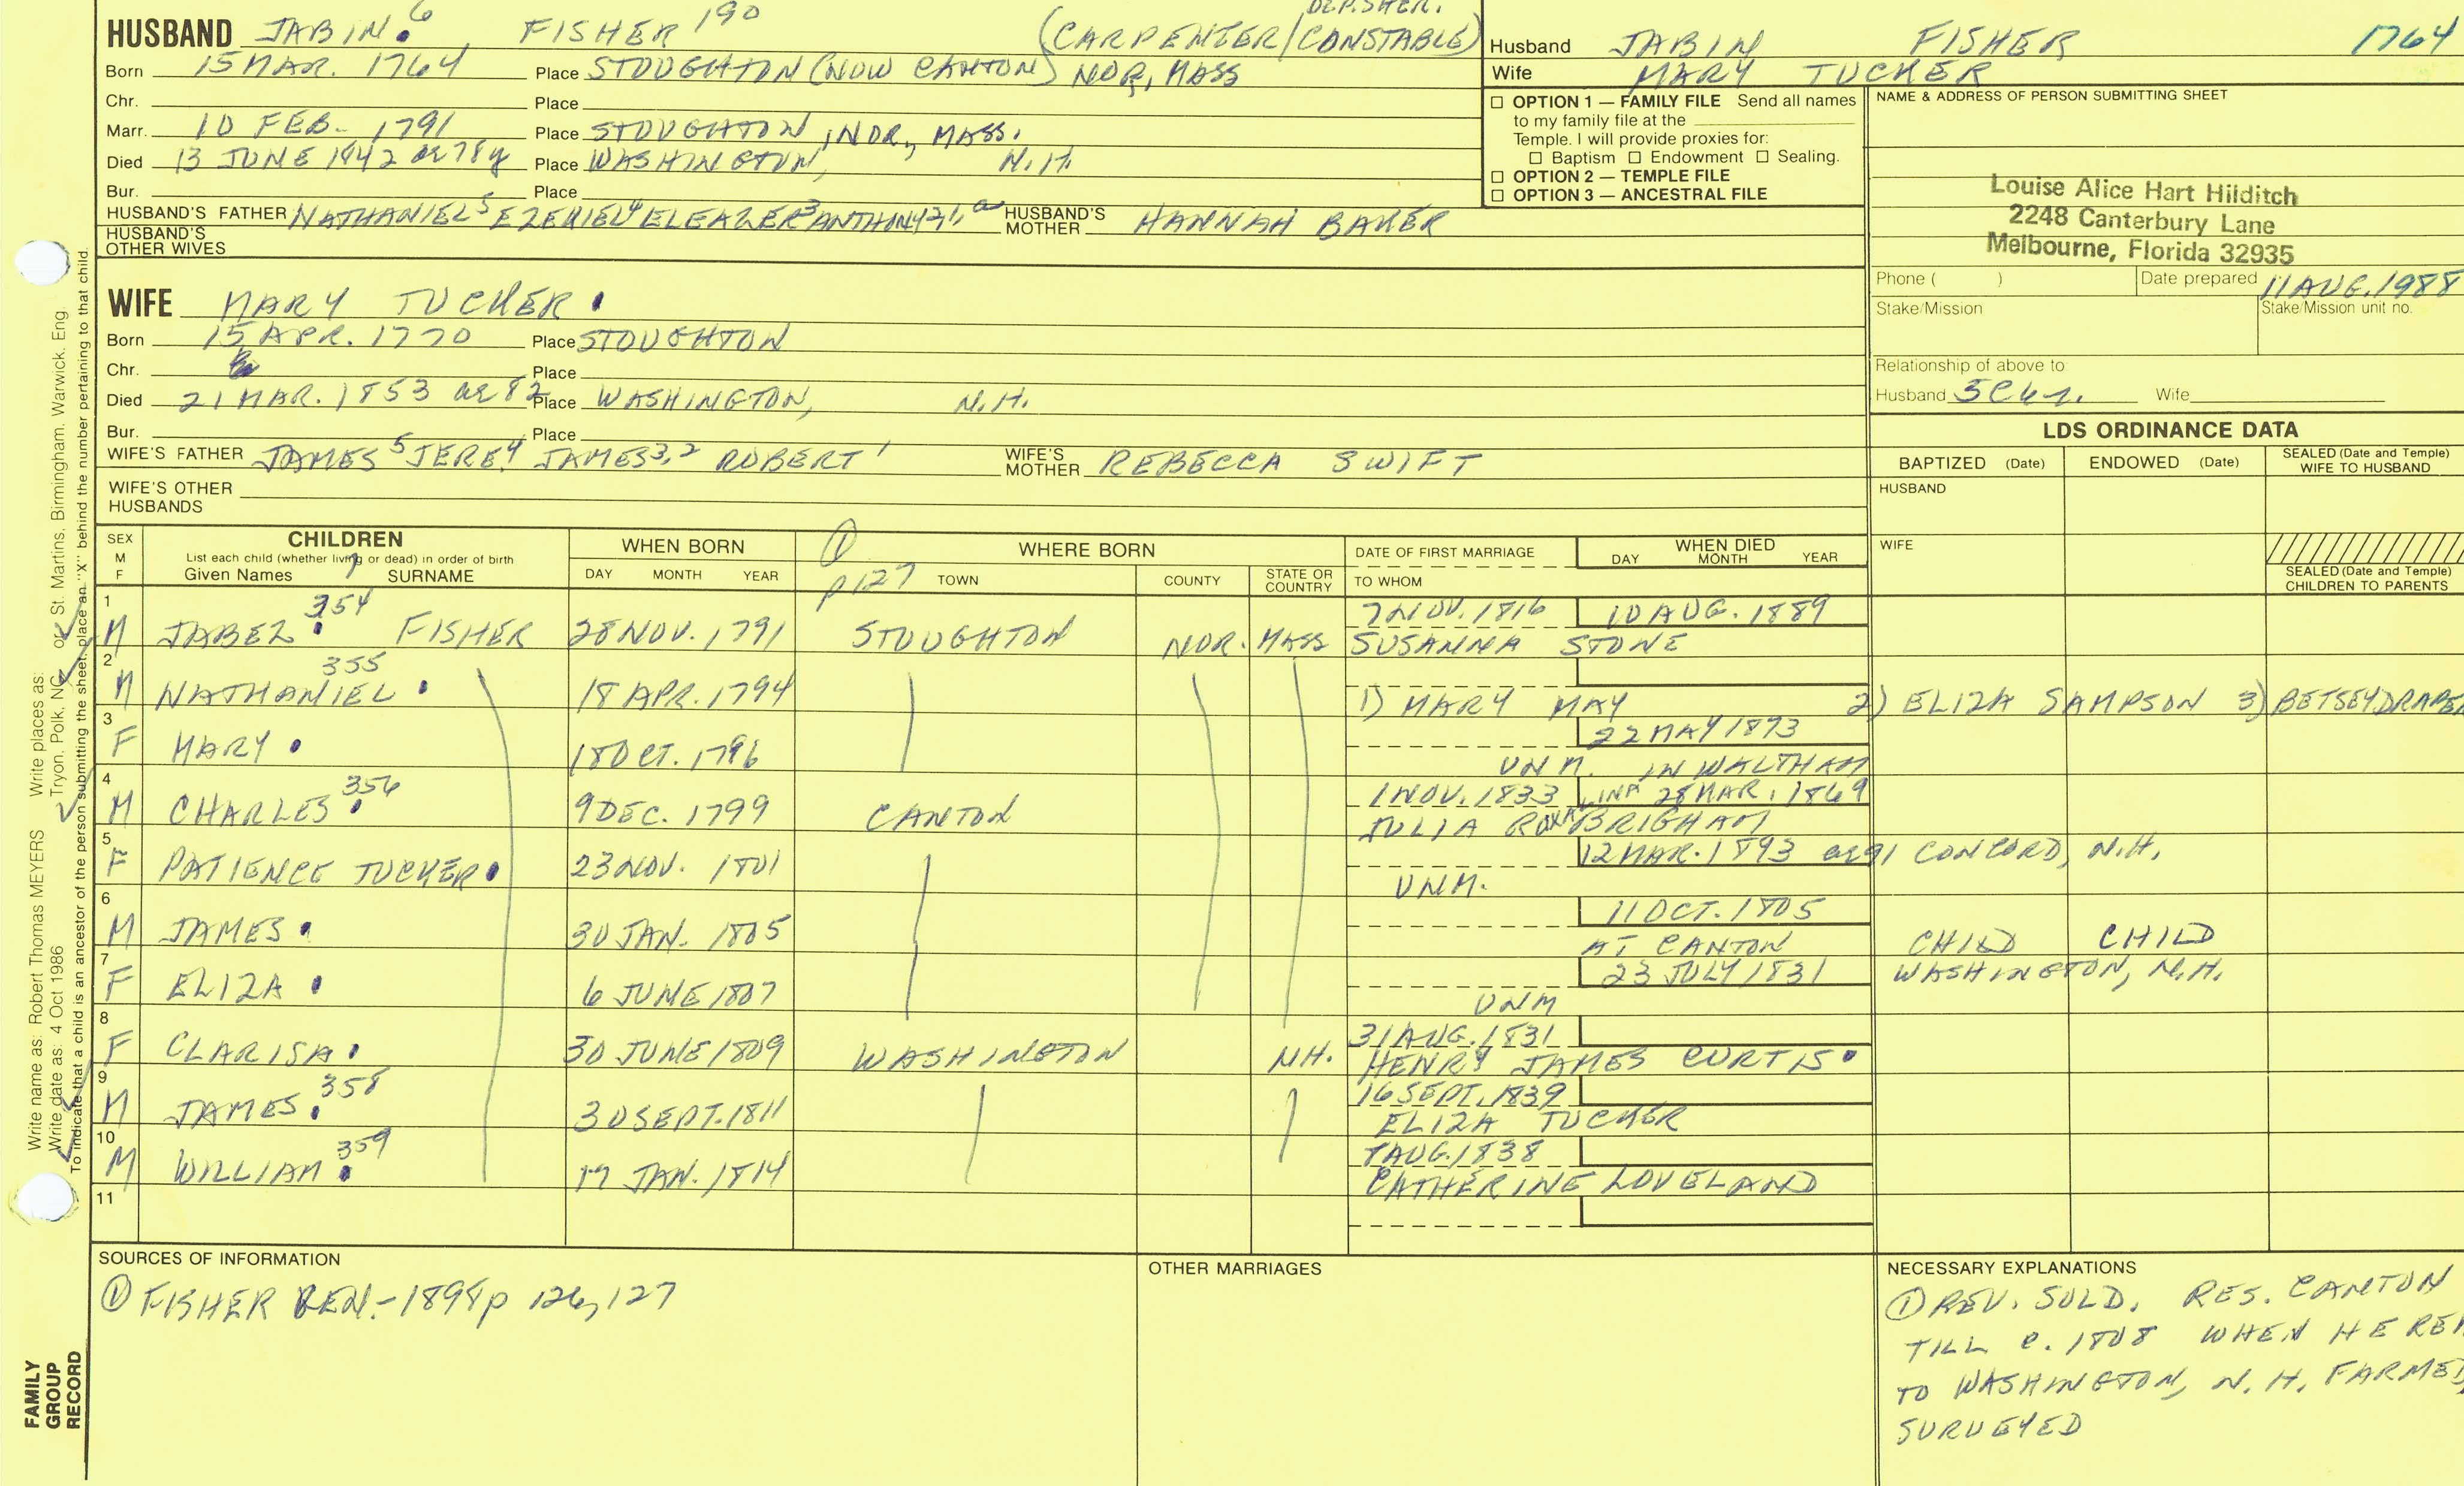 DEP. SHER.
HUSBAND JABIN 6 FISHER 190 (CARPENTER/CONSTABLE)
Born 15 MAR. 1764 Place STOUGHTON (NOW CANTON) NOR, MASS
Chr. Place
Marr. 10 FEB. 1791 Place STOUGHTON, NOR., MASS.
Died 13 JUNE 1842 ae 78y Place WASHINGTON, N.H.
Bur. Place
HUSBAND'S FATHER NATHANIEL5 EZEKIEL4 ELEAZER3 ANTHONY2,1 HUSBAND'S MOTHER HANNAH BAKER
HUSBAND'S OTHER WIVES
Husband JABIN FISHER 1764
Wife MARY TUCKER
☐ OPTION 1 — FAMILY FILE Send all names
to my family file at the
Temple. I will provide proxies for:
☐ Baptism ☐ Endowment ☐ Sealing.
☐ OPTION 2 — TEMPLE FILE
☐ OPTION 3 — ANCESTRAL FILE
NAME & ADDRESS OF PERSON SUBMITTING SHEET
Louise Alice Hart Hilditch
2248 Canterbury Lane
Melbourne, Florida 32935
Phone ( ) Date prepared 11 AUG. 1988
Stake/Mission Stake/Mission unit no.
Relationship of above to:
Husband Wife
WIFE MARY TUCKER
Born 15 APR. 1770 Place STOUGHTON
Chr. Place
Died 21 MAR. 1853 ae 82 Place WASHINGTON, N.H.
Bur. Place
WIFE'S FATHER JAMES5 JERE4 JAMES3,2 ROBERT1 WIFE'S MOTHER REBECCA SWIFT
WIFE'S OTHER HUSBANDS
LDS ORDINANCE DATA
BAPTIZED (Date) ENDOWED (Date) SEALED (Date and Temple) WIFE TO HUSBAND
HUSBAND
WIFE
SEALED (Date and Temple) CHILDREN TO PARENTS
SEX M F
CHILDREN
List each child (whether living or dead) in order of birth
Given Names 7 SURNAME
WHEN BORN
DAY MONTH YEAR
① p127
WHERE BORN
TOWN COUNTY STATE OR COUNTRY
DATE OF FIRST MARRIAGE
TO WHOM
WHEN DIED
DAY MONTH YEAR
1 354 7 NOV. 1816 10 AUG. 1889
M JABEZ FISHER 28 NOV. 1791 STOUGHTON NOR. MASS SUSANNA STONE
2 355
M NATHANIEL 18 APR. 1794 1) MARY MAY 2) ELIZA SAMPSON 3) BETSEY DRAPER
3 22 MAY 1873
F MARY 18 OCT. 1796 UNM. IN WALTHAM
4 356 1 NOV. 1833 28 MAR. 1869
M CHARLES 9 DEC. 1799 CANTON JULIA ROXALINA BRIGHAM
5 12 MAR. 1893 ae 91 CONCORD, N.H.
F PATIENCE TUCKER 23 NOV. 1801 UNM.
6 11 OCT. 1805
M JAMES 30 JAN. 1805 AT CANTON CHILD CHILD
7 23 JULY 1831 WASHINGTON, N.H.
F ELIZA 6 JUNE 1807 UNM
8 31 AUG. 1831
F CLARISA 30 JUNE 1809 WASHINGTON NH. HENRY JAMES CURTIS
9 358 16 SEPT. 1839
M JAMES 30 SEPT. 1811 ELIZA TUCKER
10 359 AUG. 1838
M WILLIAM JAN. 1814 CATHERINE LOVELAND
11
SOURCES OF INFORMATION
① FISHER GEN.-1898 p 126, 127
OTHER MARRIAGES
NECESSARY EXPLANATIONS
① REV. SOLD. RES. CANTON
TILL c. 1808 WHEN HE REM
TO WASHINGTON, N.H. FARMED,
SURVEYED
Write name as: Robert Thomas MEYERS Write places as: or St. Martins, Birmingham, Warwick, Eng
Write date as: 4 Oct 1986 Tryon, Polk, NC
To indicate that a child is an ancestor of the person submitting the sheet, place an "X" behind the number pertaining to that child.
FAMILY
GROUP
RECORD